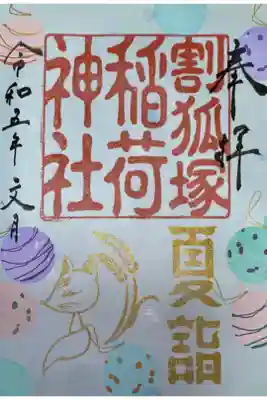 奉拝
割狐塚
稲荷
神社
夏詣
令和五年文月